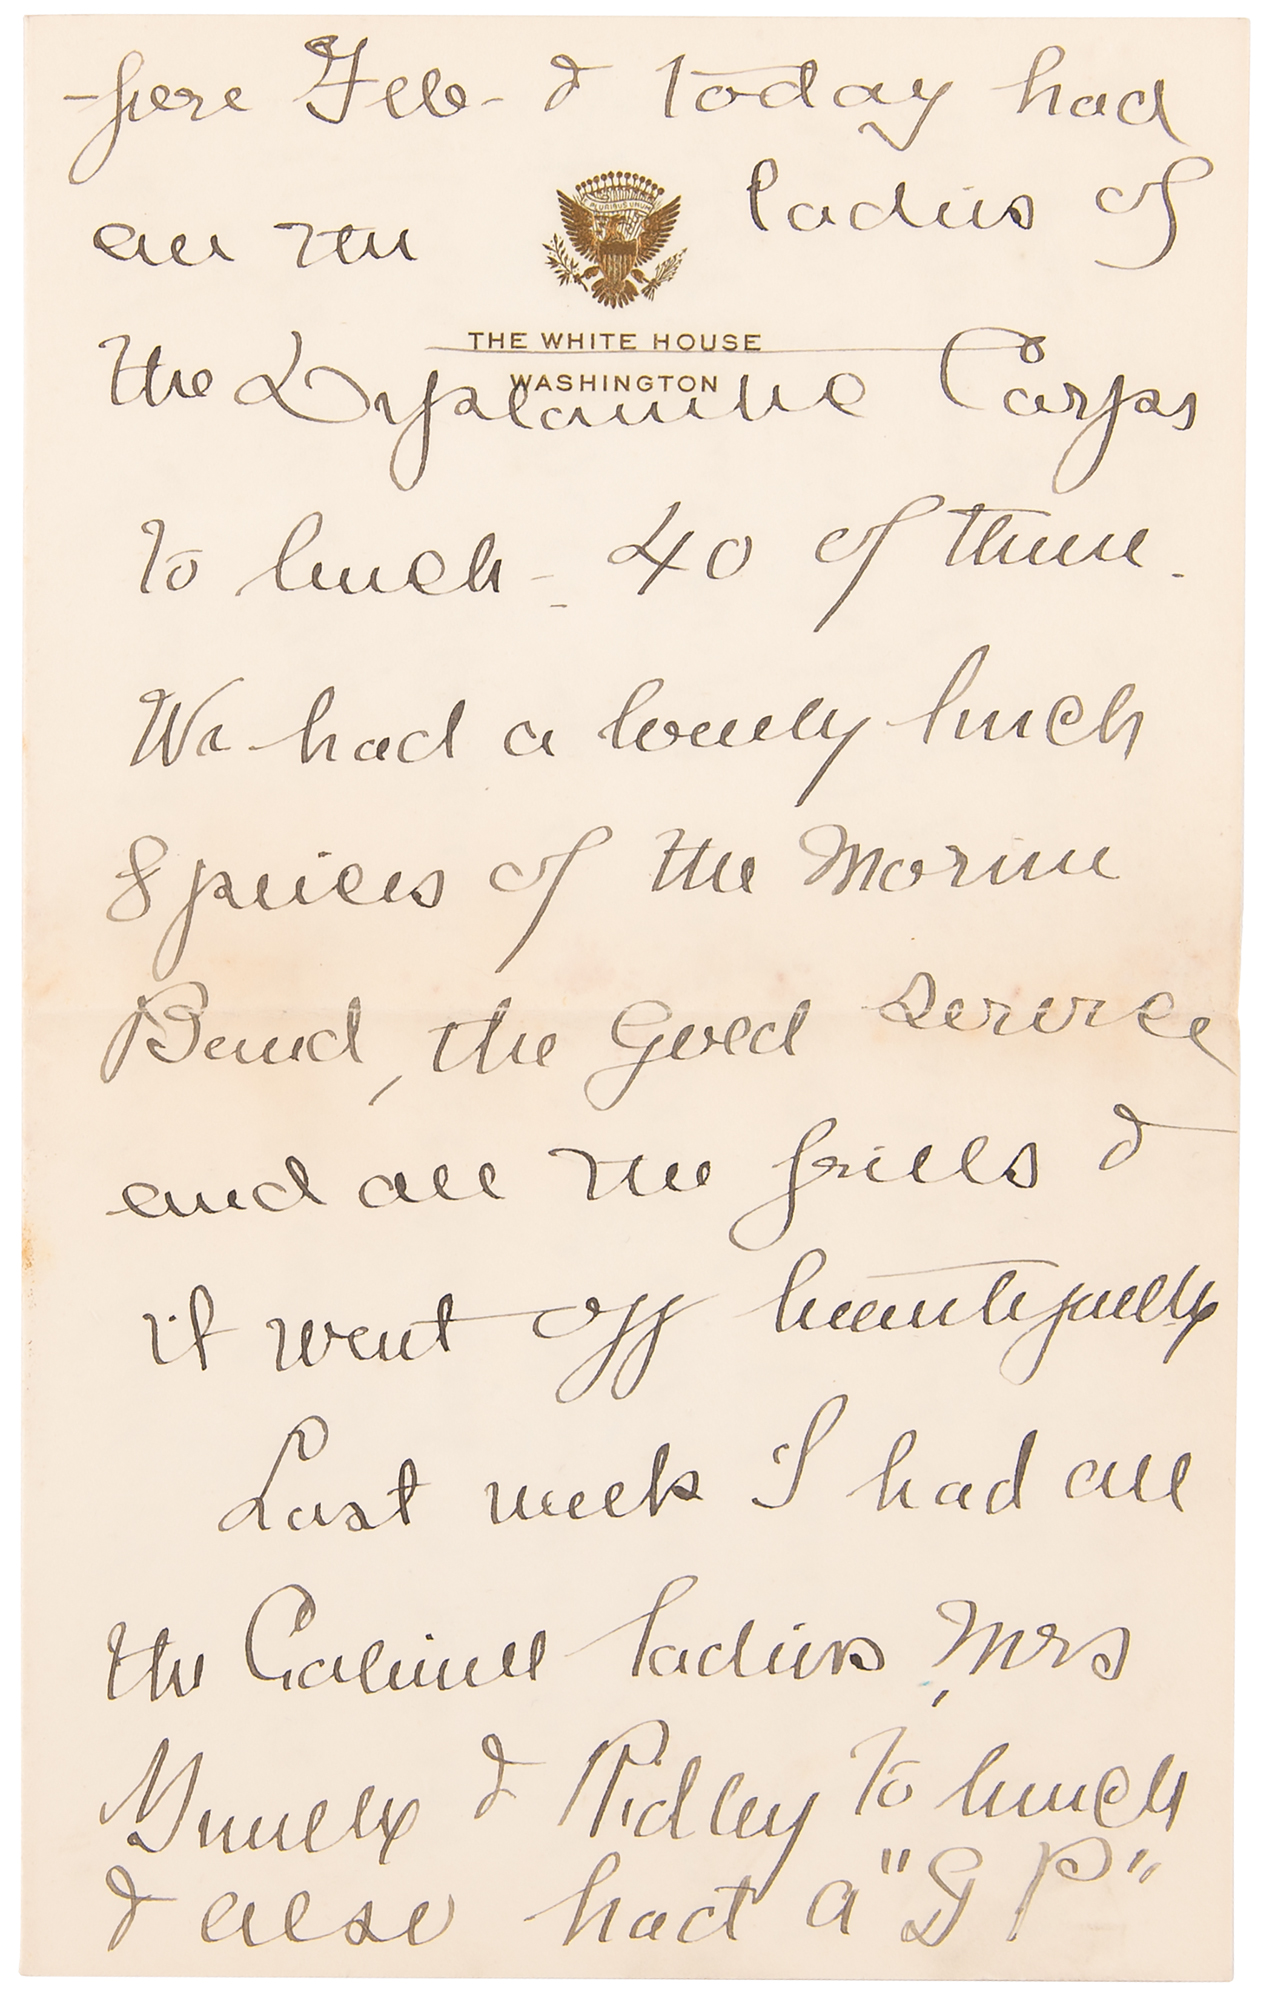 -fore Feb- & today had
all the ladies of
E PLURIBUS UNUM
THE WHITE HOUSE
WASHINGTON
the Diplomatic Corps
to lunch - 40 of them.
We had a lovely lunch
8 pieces of the Marine
Band, the Gold service
and all the frills &
it went off beautifully
Last week I had all
the Cabinet ladies, Mrs
& Ridley to lunch
& also had a "G P"